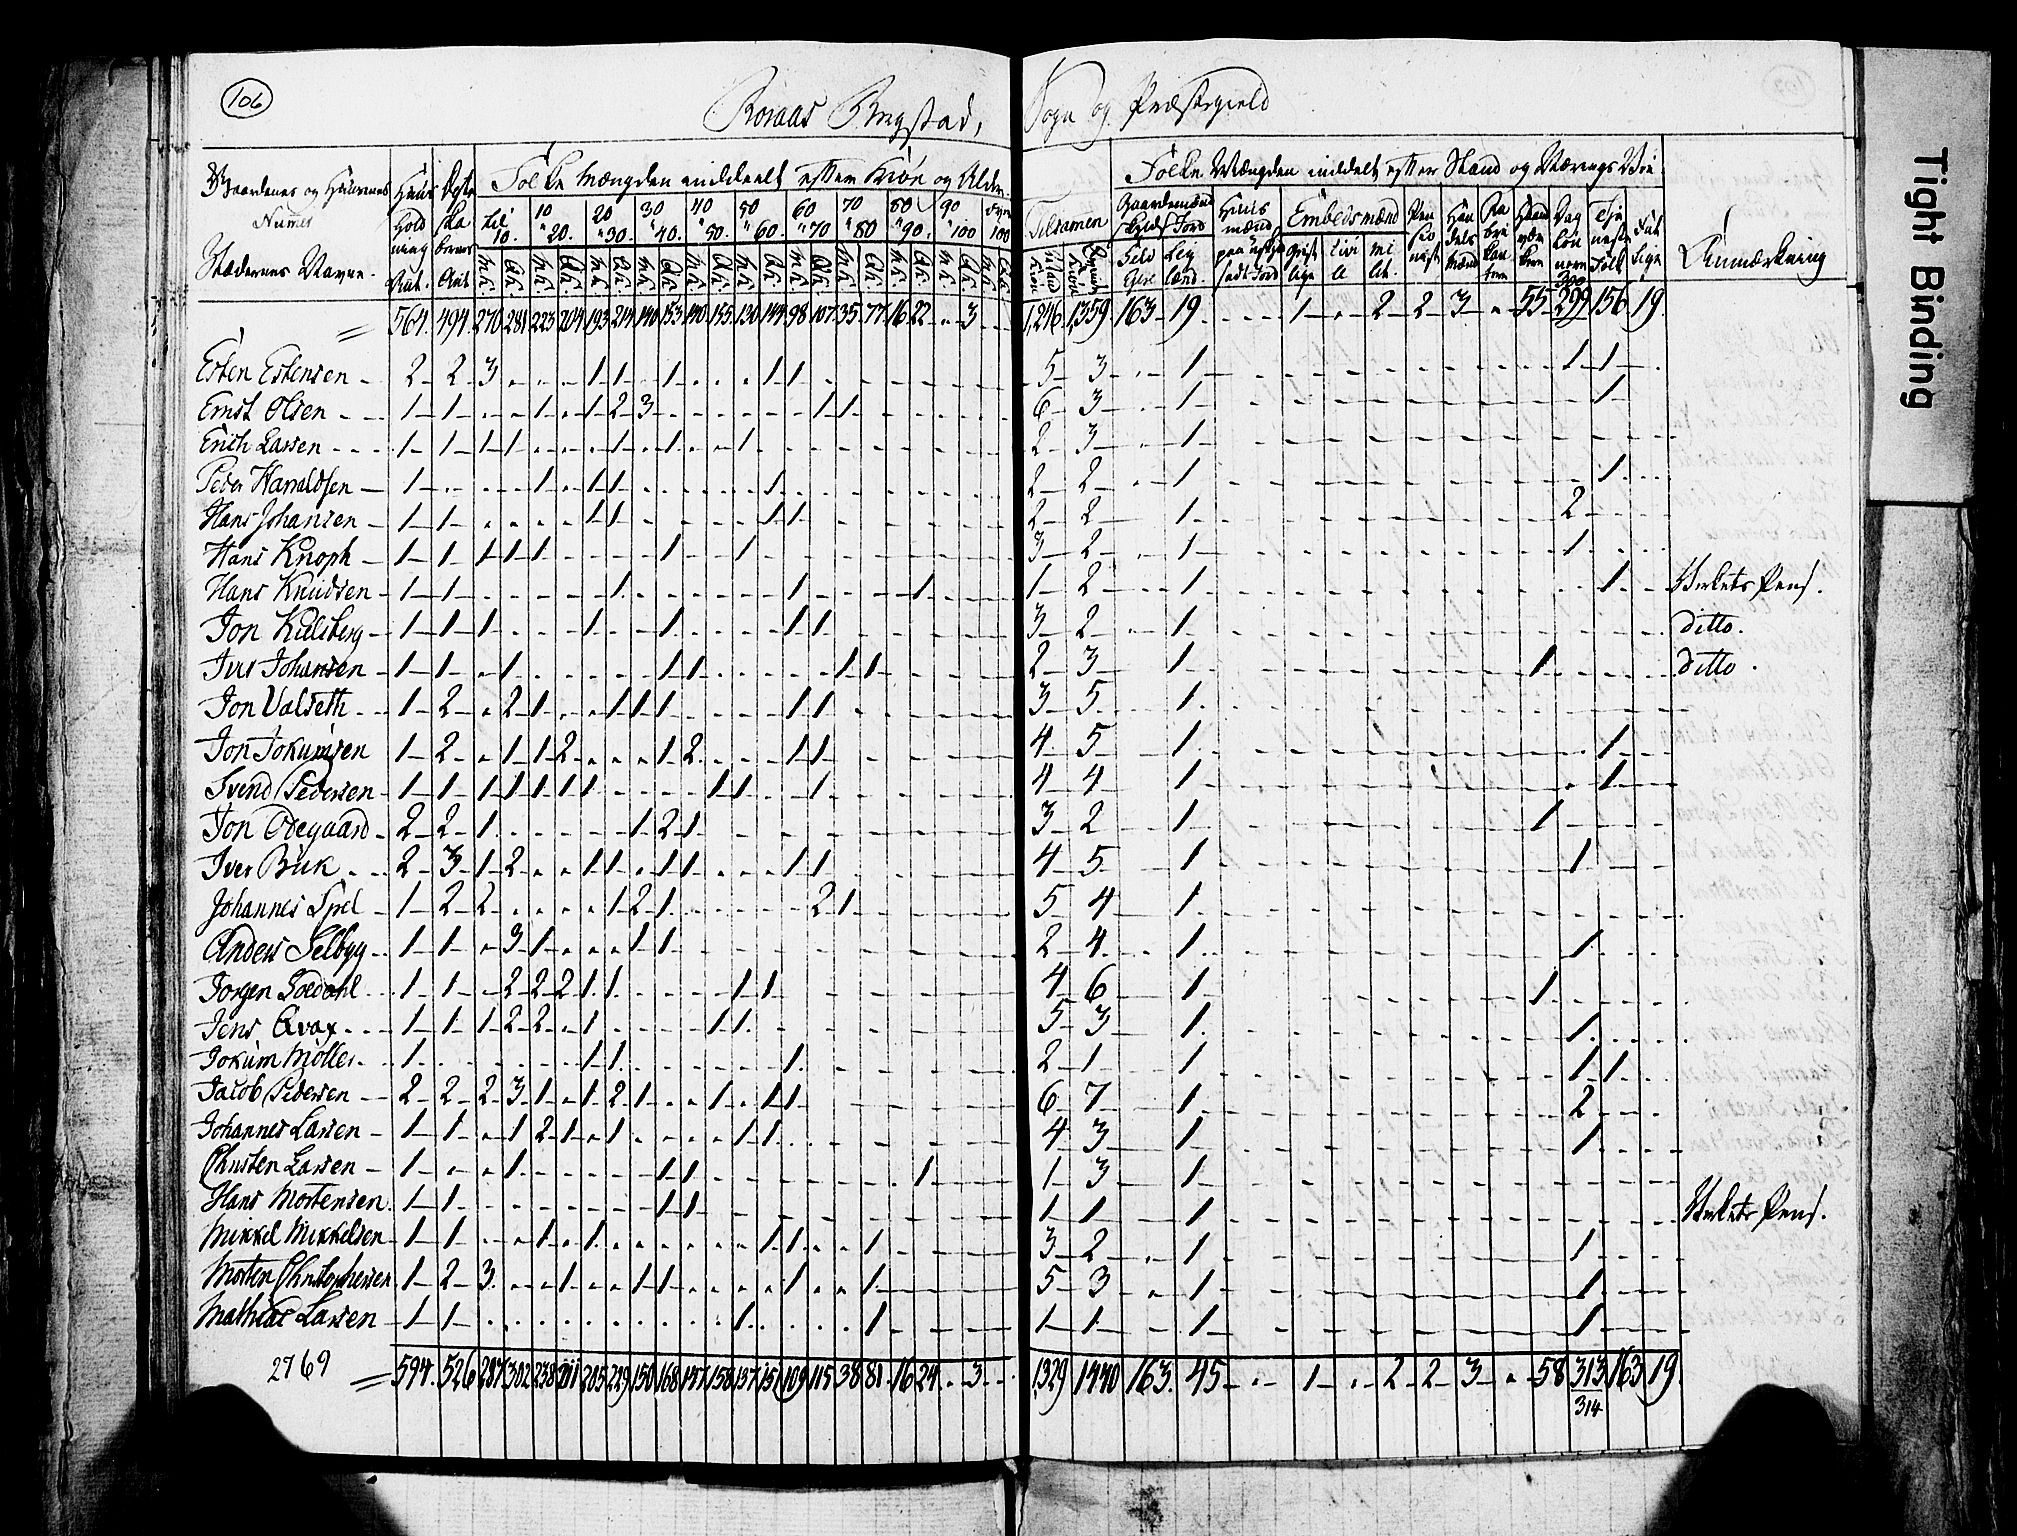 106
Roraas Bergstad, Sogn og Præstegield
Gaardenes og Huusenes Numer
Stædernes Navne.
Folke Mængden inddeelt efter Kiøn og Alder.
Tilsamen
Folke Mængden inddelt efter Stand og Nærings Vei
Embedsmænd
Anmærkning
til 10. 10 " 20. 20 " 30. 30 " 40. 40 " 50. 50 " 60. 60 " 70 70 " 80 80 " 90. 90 " 100
564. 494. 270 281 223 204 193 214 140 153 140 155 130 144 98 107 35 77 16 22 3 1,246 1,359 163 19 1 2 2 3 55 299 156 19
Esten Estensen 2 2 3 1 1 1 1 1 5 3 1 1 1
Ernst Olsen 1 1 1 1 2 3 1 1 6 3 1 1
Erich Larsen 1 1 1 1 1 1 1 2 3 1
Peder Harraldsen 1 1 1 1 1 2 2 1 1
Hans Johansen 1 1 1 1 1 1 2 2 1 2
Hans Knoph 1 1 1 1 1 1 1 3 2 1 1
Hans Knudsen 1 1 1 1 1 1 2 1 1 Verkets Pens.
Jon Kulsberg 1 1 1 1 1 1 1 3 2 1 ditto.
Jens Johansen 1 1 1 1 1 1 1 2 3 1 1 ditto.
Jon Valseth 1 2 2 1 1 1 1 1 1 3 5 1
Jon Jokumsen 1 2 1 1 2 1 2 1 1 4 5 1 1
Svend Pedersen 1 1 1 1 1 1 1 1 1 1 4 4 1 1
Jon Ødegaard 2 2 1 1 2 1 3 2 1 1
Iver Buk 2 3 1 2 1 1 1 1 1 1 4 5 1 1
Johannes Spel 1 2 2 1 2 1 2 1 5 4 1
Anders Selbyg 1 1 3 1 1 1 2 4 1 1
Jørgen Soedahl 1 1 2 2 2 1 1 1 1 4 6 1 1
Jens Qvax 1 1 1 2 2 1 1 1 5 3 1 1
Jokum Møller 1 1 1 1 2 1 1 1 1
Jacob Pedersen 2 2 2 3 1 1 2 1 1 1 1 6 7 1 2
Johannes Larsen 1 1 1 2 1 1 1 1 4 3 1 1
Christen Larsen 1 1 1 1 1 1 3 1
Hans Mortensen 1 1 1 1 1 1 1 Verkets Pens.
Mikkel Mikkelsen 1 1 1 1 1 1 1 3 2 1 1
Morten Christophersen 1 2 3 1 1 1 1 1 5 3 1 1
Mathias Larsen 1 1 1 1 1 1 1 1
2769 594. 526 287 302 238 211 205 229 150 168 147 158 137 151 109 115 38 81 16 24 3 1329 1440 163. 45 1 2 2 3 58 313 163 19
314
Tight Binding